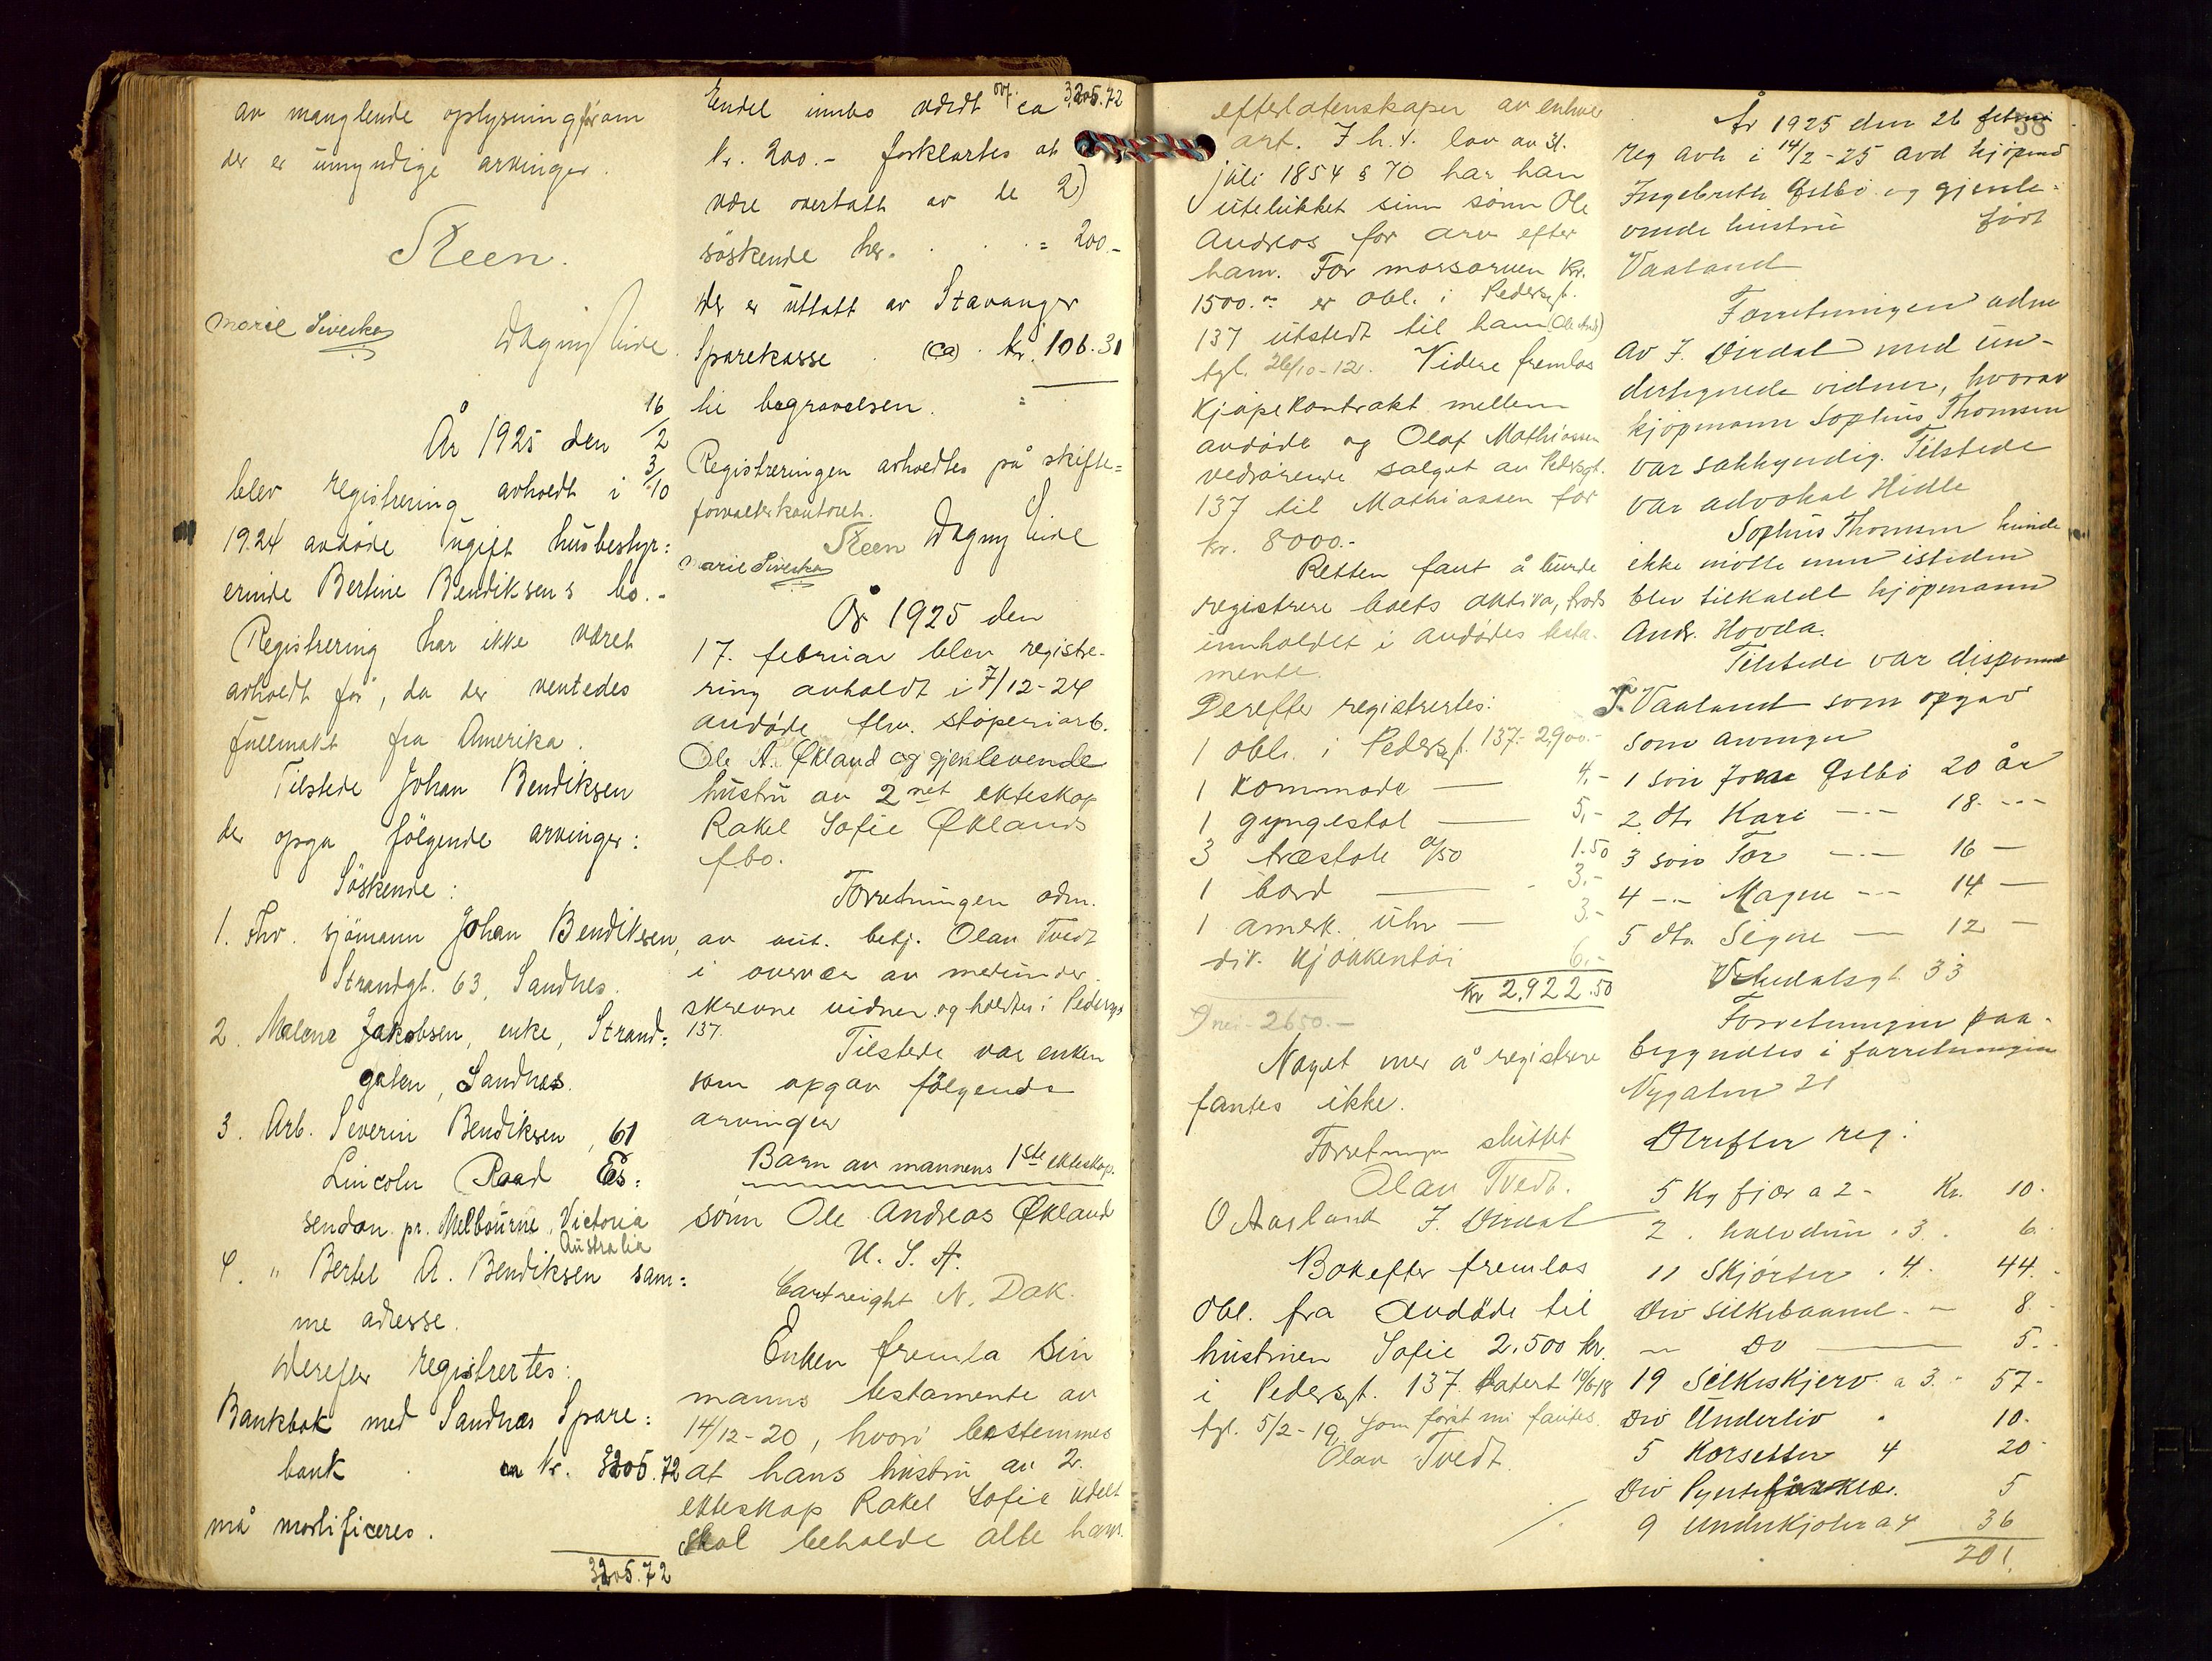 av manglende oplysning før om
der er umyndige arvinger.
Steen.
Marie Sivertsen
Dagny Eide.
År 1925 den 16/2
blev registrering avholdt i 3/10
1924 avdøde ugift husbestyr=
erinde Bertine Bendiksens bo.-
Registrering har ikke været
avholdt før, da der ventedes
fullmakt fra Amerika.
Tilstede Johan Bendiksen
der opga følgende arvinger:
Søskende:
1. Fhv. sjømann Johan Bendiksen,
Strandgt. 63, Sandnes.
2. Malena Jakobsen, enke, Strand=
gaten, Sandnes.
3. Arb. Severin Bendiksen, 61
Lincoln Road Es=
sendon pr. Melbourne, Victoria
Australia
4. " Bertel A. Bendiksen sam=
me adresse.
Derefter registrertes:
Bankbok med Sandnes Spare=
bank . kr. 3205.72
må mortificeres.
3205.72
ovf. 3205.72
Endel innbo værdt ca
kr. 200.- forklartes at
være overtatt av de 2)
søskende her. . . . = 200.-
Der er uttatt av Stavanger
Sparekasse . (ca) . kr. 106.31
til begravelsen. =
Registreringen avholdtes på skifte=
forvalterkontoret.
Steen Dagny Eide
Marie Sivertsen
År 1925 den
17. februar blev registre-
ring avholdt i 7/12-24
avdøde fhv. støperiarb.
Ole A. Økland og gjenlevende
hustru av 2net ekteskap
Rakel Sofie Øklands
fbo.
Forretningen adm.
av aut. betj. Olav Tvedt
i overvær av medunder-
skrevne vidner og holdtes i Pedersgt
137.
Tilstede var enken
som opgav følgende
arvinger
Barn av mannens 1ste ekteskap.
sønn Ole Andreas Økland
U. S. A.
Cartreight N. Dak.
Enken fremla sin
manns testamente av
14/12-20, hvori bestemmes
at hans hustru av 2.
ekteskap Rakel Sofie udelt
skal beholde alle hans
efterlatenskaper av enhver
art. I h.t. lov av 31.
juli 1854 § 70 har han
utelukket sinn sønn Ole
Andreas for arv efter
ham. For morsarven kr.
1500.- er obl. i Pedersgt.
137 utstedt til ham (Ole Andr)
tgl. 26/10-12. Videre fremlas
Kjøpekontrakt mellem
avdøde og Olaf Mathiassen
vedrørende salget av Pedersgt.
137 til Mathiassen for
kr. 8000.-
Retten fant å burde
registrere boets aktiva, trods
innholdet i avdødes testa-
mente.
Derefter registrertes:
1 obl. i Pedersgt. 137- 2,900.-
1 kommode — 4,-
1 gyngestol — 5,-
3 træstole a/50 1.50
1 bord — 3.-
1 amerk. uhr — 3.-
div. kjøkkentøi 6.-
Kr 2,922.50
2650.-
Noget mer å registrere
fantes ikke.
Forretningen sluttet
Olav Tvedt.
O Aasland J. Dirdal
Bakefter fremlas
obl. fra avdøde til
hustruen Sofie 2.500 kr.
i Pedersgt. 137. Datert 10/6-18
tgl. 5/2-19, som først nu fantes.
Olav Tvedt.
38
År 1925 den 26 februar
reg avh i 14/2-25 avd kjøpmd
Ingebreth Østbø og gjenle-
vende hustru født
Vaaland
Forretningen adm
av J. Dirdal med un-
dertegnede vidner, hvorav
kjøpmann Sophus Thomsen
var sakkyndig. Tilstede
var advokat Hidle
Sophus Thomsen kunde
ikke møtte men isteden
blev tilkaldt kjøpmann
Andr. Hovda.
Tilstede var disponent
T. Vaaland som opgav
som arvinger
1 søn Jone Østbø 20 år
2 dtr Kari —"— 18 - - -
3 søn Tor —"— 16 —
4 —"— Magne —"— 14 —
5 dtr Signe — 12 —
Vikedalsgt. 33
Forretningen paa-
begyndtes i forretningen
Nygaten 21
Derefter reg:
5 Kg fjær a 2- Kr. 10.
2 . halvdun . 3. . 6.
11 Skjørter . 4. 44.-
Div silkebaand - — 8.-
— Do — 5.-
19 Silkeskjerv a 3.- 57-
Div Underliv . 10.
5 Korsetter 4 20-
Div Pynteforklær. 5
9 Underkjoler a 4 36
201.